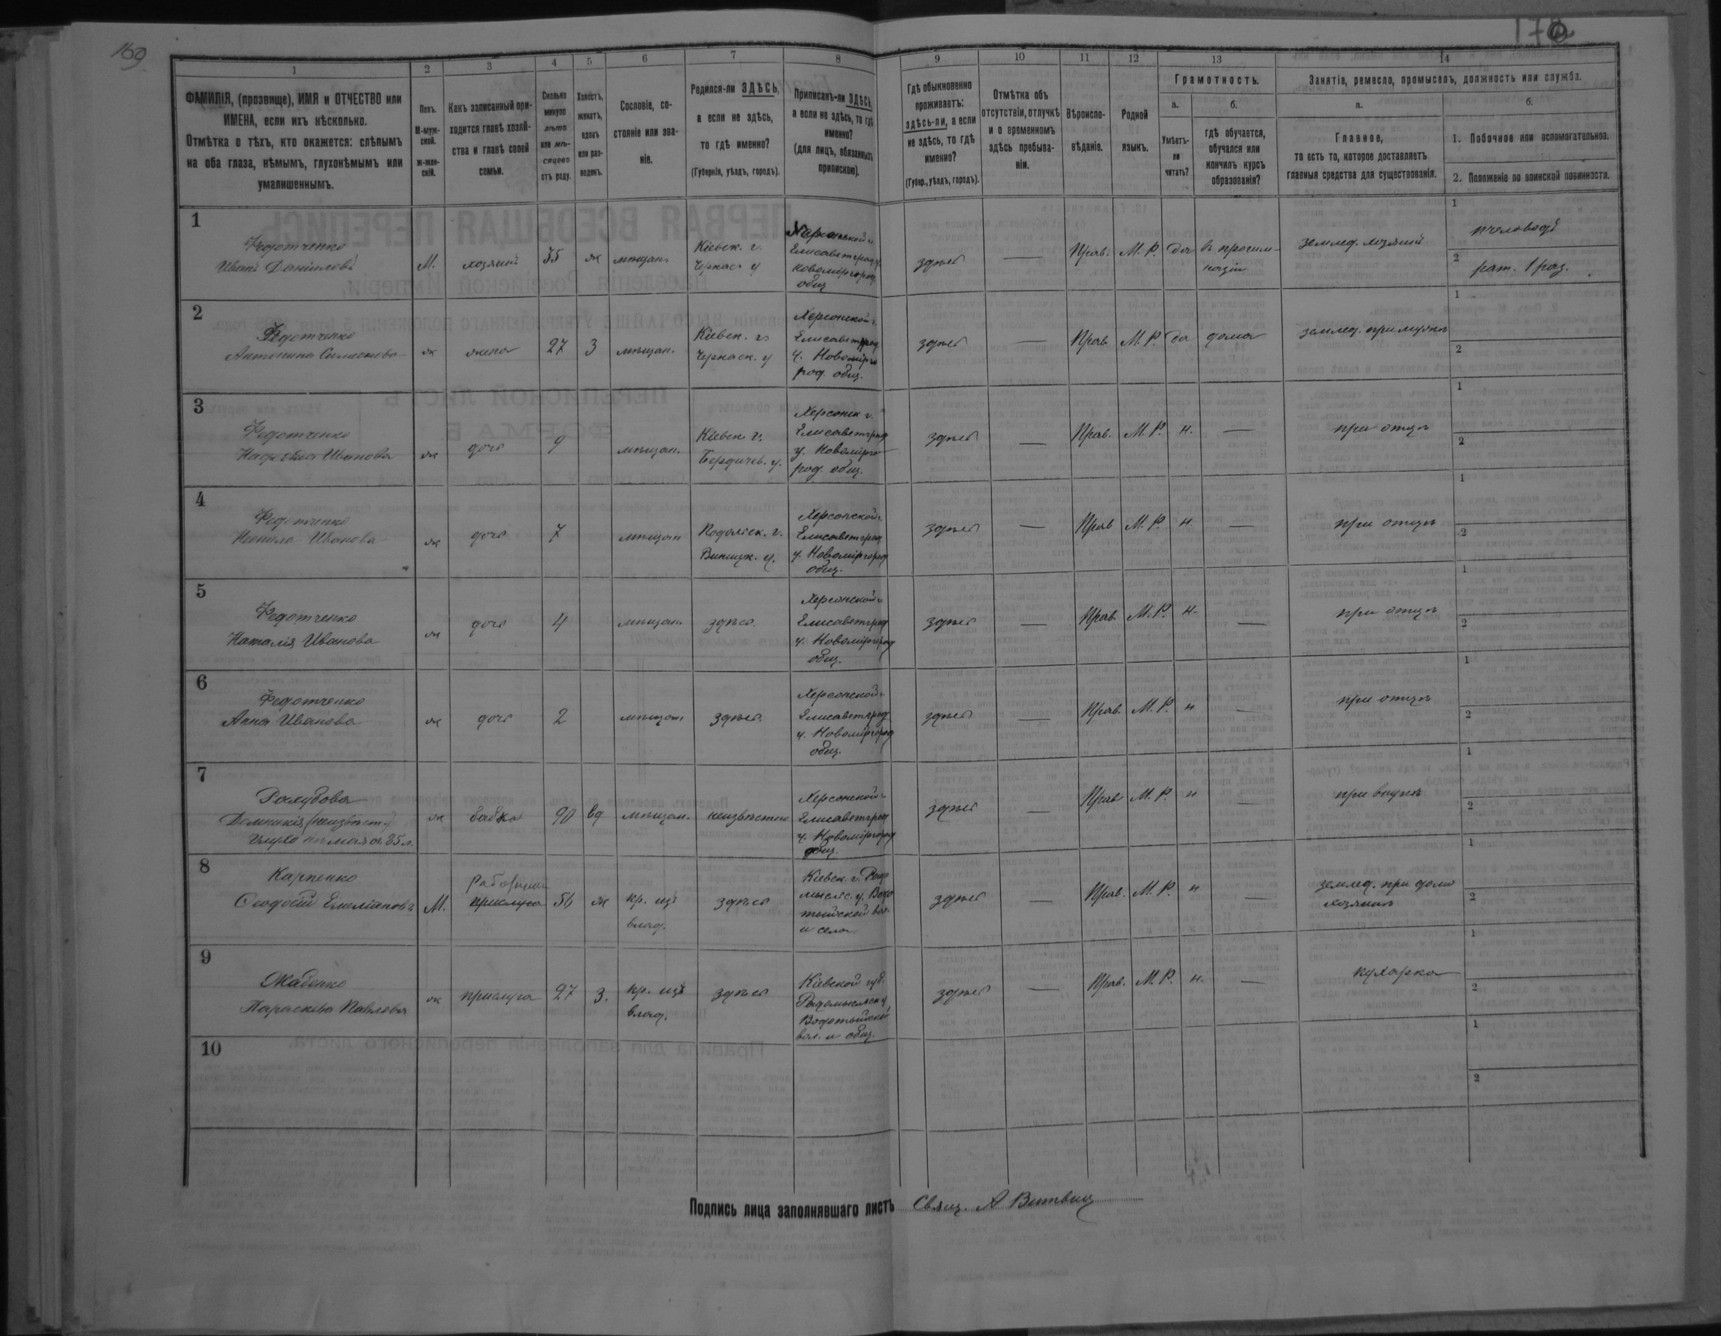 169
170
1 2 3 4 5 6 7 8 9 10 11 12 13 14
ФАМИЛІЯ, (прозвище), ИМЯ и ОТЧЕСТВО или ИМЕНА, если ихъ нѣсколько.
Отмѣтка о тѣхъ, кто окажется: слѣпымъ на оба глаза, нѣмымъ, глухонѣмымъ или умалишеннымъ.
Полъ.
М-муж-
ской.
ж-жен-
скій.
Какъ записанный при-
ходится главѣ хозяй-
ства и главѣ своей
семьи.
Сколько
минуло
лѣтъ
или мѣ-
сяцевъ
отъ роду.
Холостъ,
женатъ,
вдовъ
или раз-
веденъ.
Сословіе, со-
стояніе или зва-
ніе.
Родился-ли ЗДѢСЬ,
а если не здѣсь,
то гдѣ именно?
(Губернія, уѣздъ, городъ).
Приписанъ-ли ЗДѢСЬ,
а если не здѣсь, то гдѣ
именно?
(для лицъ, обязанныхъ
припискою).
Гдѣ обыкновенно
проживаетъ:
здѣсь-ли, а если
не здѣсь, то гдѣ
именно?
(Губер., уѣздъ, городъ).
Отмѣтка объ
отсутствіи, отлучкѣ
и о временномъ
здѣсь пребыва-
ніи.
Вѣроиспо-
вѣданіе.
Родной
языкъ.
Грамотность.
а.
Умѣетъ-
ли
читать?
б.
гдѣ обучается,
обучался или
кончилъ курсъ
образованія?
Занятіе, ремесло, промыселъ, должность или служба.
а.
Главное,
то есть то, которое доставляетъ
главныя средства для существованія.
б.
1. Побочное или вспомогательное.
2. Положеніе по воинской повинности.
1
Федотченко
Иванъ Даниловъ
М. хозяинъ 35 ж мѣщан.
Кіевск. г.
Черкас. у
Херсонской г.
Елисаветград. у.
Новоміргород.
общ.
здѣсь Прав. М. Р. да
въ прогим-
назіи
землед. хозяинъ
1 пчеловодъ
2 рат. 1 раз.
2
Федотченко
Антонина
ж жена 27 З мѣщан.
Кіевск. г.
Черкаск. у
Херсонской г.
Елисаветград
у. Новомірго
род общ.
здѣсь — Прав М. Р. да дома
землед. при мужѣ
1
2
3
Федотченко
Надежда Иванова
ж дочь 9 мѣщан.
Кіевск. г.
Бердичев. у.
Херсонск г.
Елисаветград
у. Новомірго
род. общ.
здѣсь — Прав. М. Р. н. —
при отцѣ
1
2
4
Федотченко
Иванова
ж дочь 7 мѣщан
Подольск. г.
Винницк. у.
Херсонской г.
Елисаветград
у. Новоміргород
общ.
здѣсь — Прав М. Р. н —
при отцѣ
1
2
5
Федотченко
Наталія Иванова
ж дочь 4 мѣщан. здѣсь
Херсонской г.
Елисаветград
у. Новоміргород
общ.
здѣсь — Прав. М. Р. н. —
при отцѣ
1
2
6
Федотченко
Анна Иванова
ж дочь 2 мѣщан здѣсь
Херсонской г.
Елисаветград
у. Новоміргород
общ.
здѣсь — Прав. М. Р. н —
при отцѣ
1
2
7
ж бабка 90 вд мѣщан. неизвѣстно
Херсонской г.
Елисаветград
у. Новоміргород
общ.
здѣсь — Прав М. Р. н —
при внукѣ
1
2
8
Карпенко
Ѳеодосій Емельяновъ
М.
Рабочій
прислуга
56 ж
кр. изъ
влад.
здѣсь
Кіевск. г. Радо
мысльс. у. Водо
тыйской вол.
и села
здѣсь — Прав. М. Р. н —
землед. при домѣ
хозяина
1
2
9
Жабенко
Параскева Павлова
ж прислуга 27 З.
кр. изъ
влад.
здѣсь
Кіевской губ.
Радомысльск у
Водотыйской
вол. и общ.
здѣсь — Прав. М. Р. н. —
кухарка
1
2
10
1
2
Подпись лица заполнявшаго листъ Свящ. А Витвиц